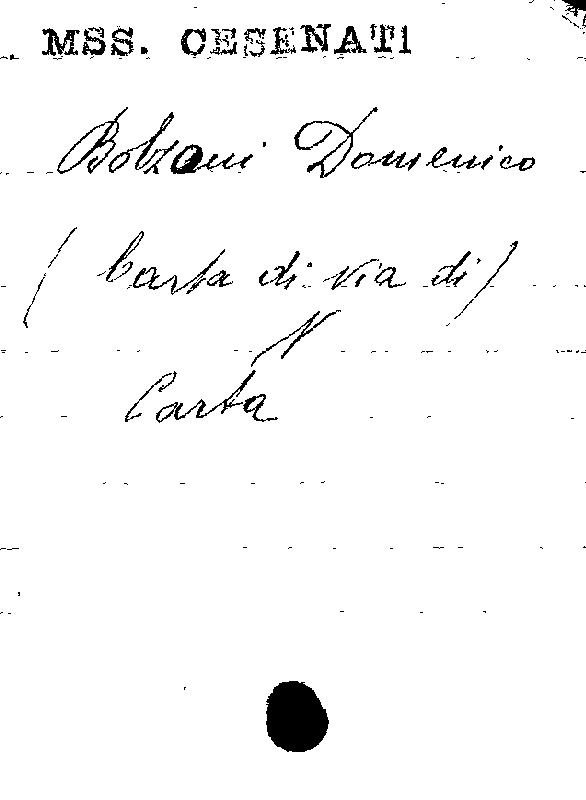 MSS. CESENATI
Bolzani Domenico
( Carta di via di )
V
Carta